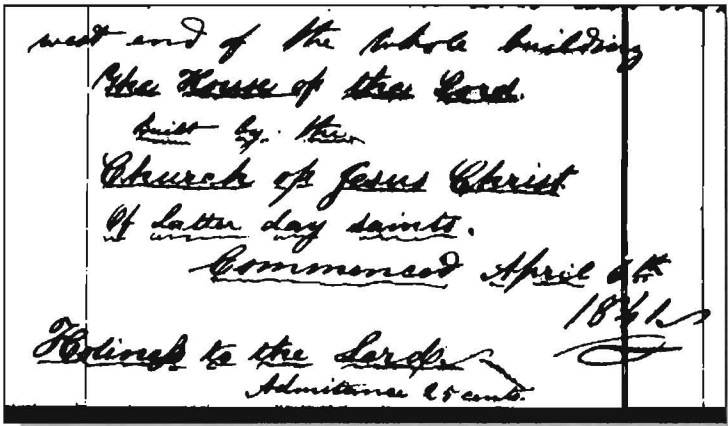 west end of the whole building
The House of the Lord.
built by the
Church of Jesus Christ
Of Latter day saints.
Commenced April 6th
1841
Holiness to the Lord.
Admitance 25 cents.